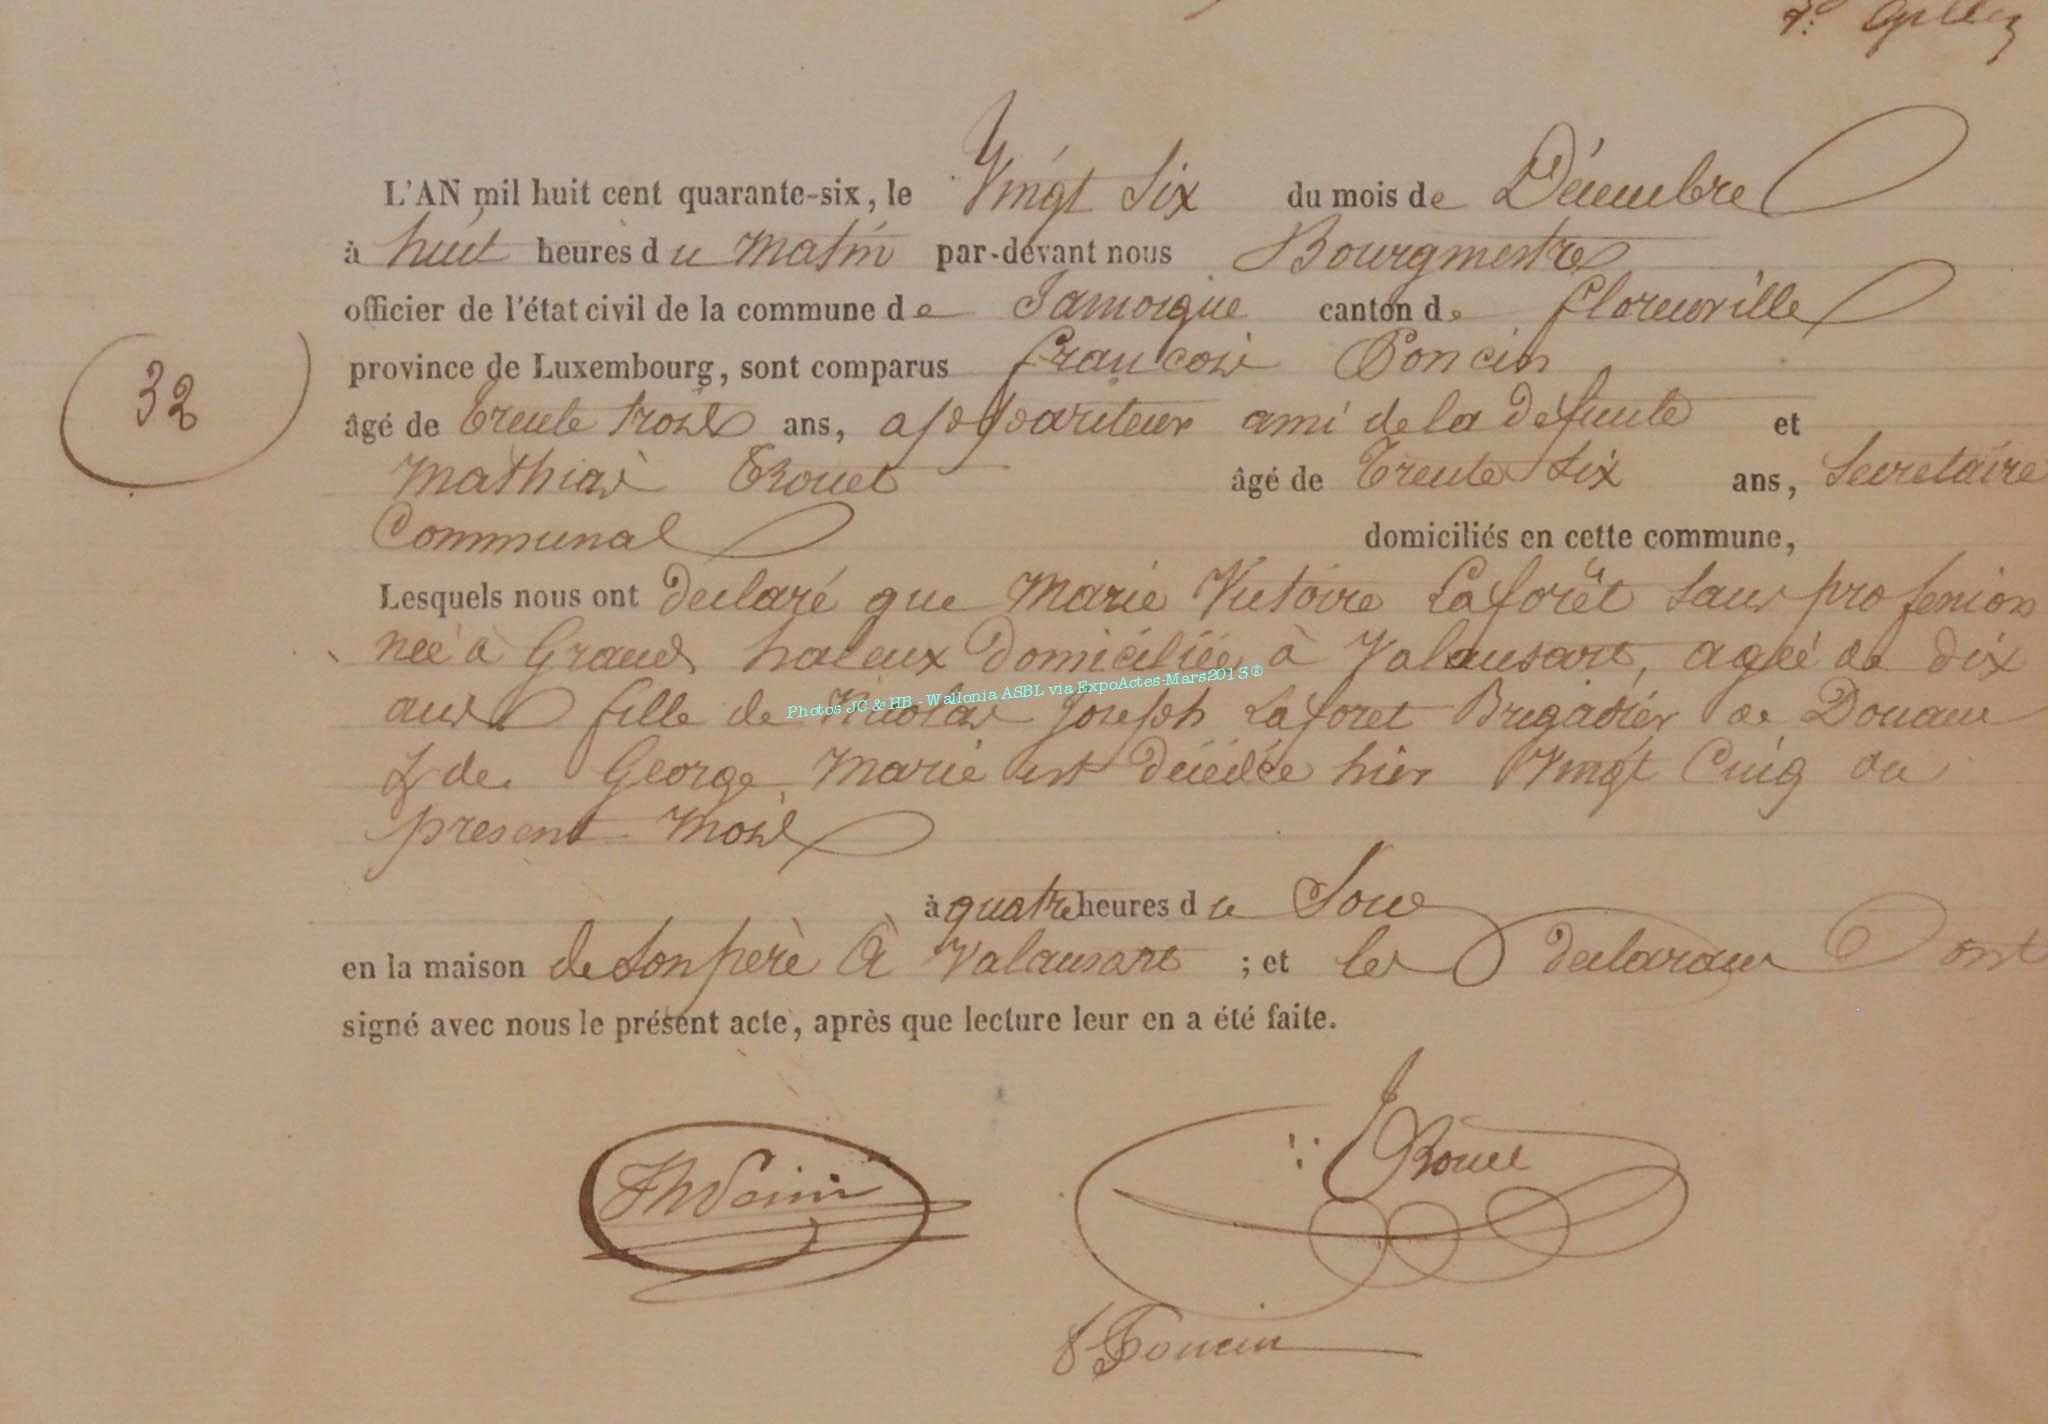 L'AN mil huit cent quarante-six, le Vingt Six du mois de Décembre
à huit heures du Matin par-devant nous Bourgmestre
officier de l'état civil de la commune de Jamoigne canton de Florenville
province de Luxembourg, sont comparus françois Poncin
32
âgé de trente trois ans, appariteur ami de la défunte et
Mathias Rouet âgé de Trente Six ans, Secretaire
Communal domiciliés en cette commune,
Lesquels nous ont declaré que Marie Victoire Laforêt sans profession
née à Grand haleux Domiciliée à Valansart, agée de dix
ans fille de Nicolas Joseph Laforet Brigadier de Douane
& de George Marie est décédée hier Vingt Cinq du
present Mois
à quatre heures du Soir
en la maison de son père à Valansart ; et les declarans ont
signé avec nous le présent acte, après que lecture leur en a été faite.
Rouet
f Poncin
Photos JC & HB - Wallonia ASBL via ExpoActes-Mars2013®